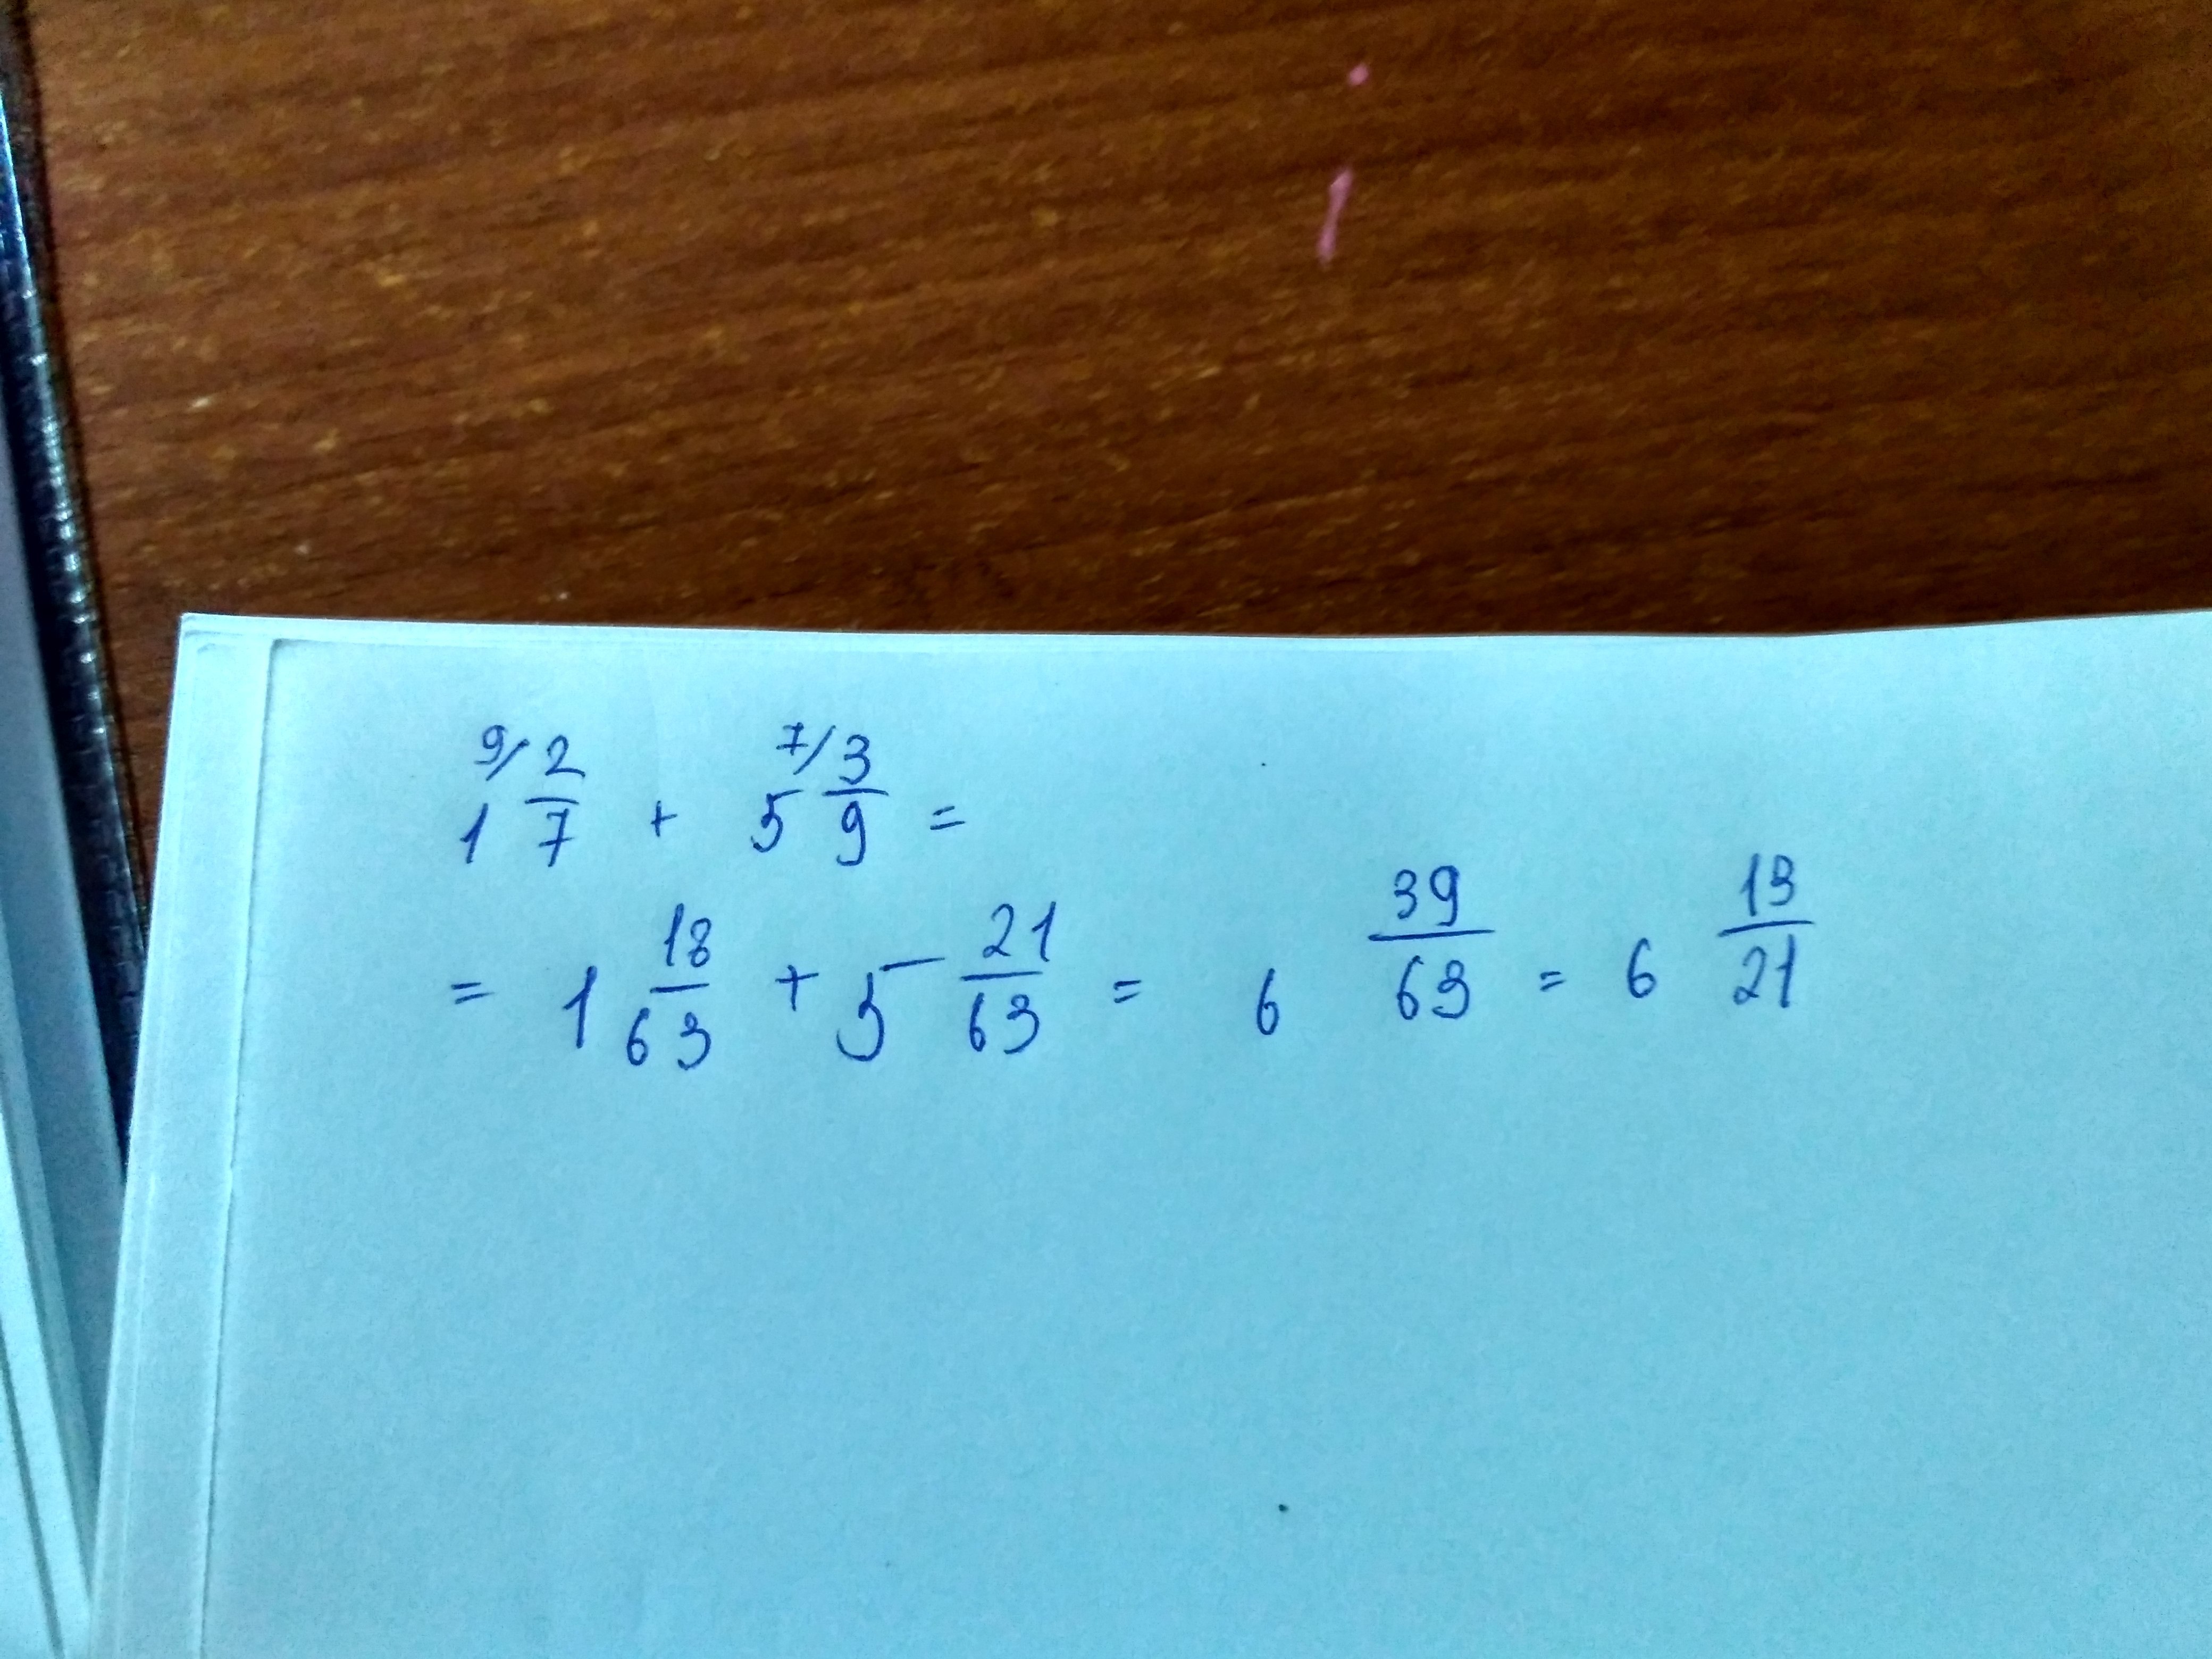 9/ 2/7 7/ 3/9
1 2/7 + 5 3/9 =
= 1 18/63 + 5 21/63 = 6 39/63 = 6 13/21